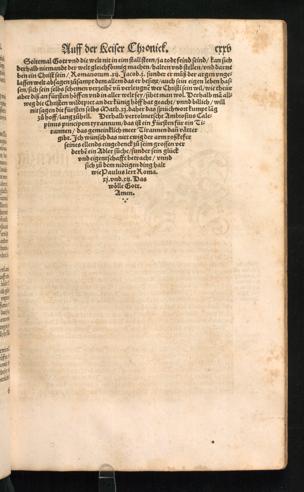 Auff der Keiser Chronick. cxxv
Seitemal Gott vnd die welt nit in ein stall steen / ja todt feind seind / kan sich
derhalb niemandt der welt gleichförmig machen / halten vnd stellen / vnd darne
ben ein Christ sein / Romanorum .xij. Jacob. j. sunder er müß der argen vnge-
lassen welt absagen zusampt dem allem das er besitzt / auch sein eigen leben has-
sen / sich sein selbs schemen verzeihē vn̄ verleugnē wer Christi sein wil / wie theür
aber diß an fürsten höff en vnd in aller welt sey / sihet man wol. Derhalb mů all-
weg die Christen wildtpret an der künig höff dar geacht / vnnd billich / will
nit sagen die fürsten selbs Math. xj. daher das sprichwort kumpt lāg
zů hoff / lang zů hell. Derhalb vertolmetscht Ambrosius Cale-
pinus principem tyrannum / das ist ein Fürsten für ein Ti-
rannen / das gemeinklich meer Tirannen dan vätter
gibt. Ich wünsch das nit ewig der arm roßkefer
seines ellends eingedenck zů seim grossen ver
derbē ein Adler sůche / sunder sein glück
vnd eigentschafft betracht / vnnd
sich zů dem nidrigen ding halt
wie Paulus lert Roma.
xj. vnd .xij. Das
wölle Gott.
Amen.